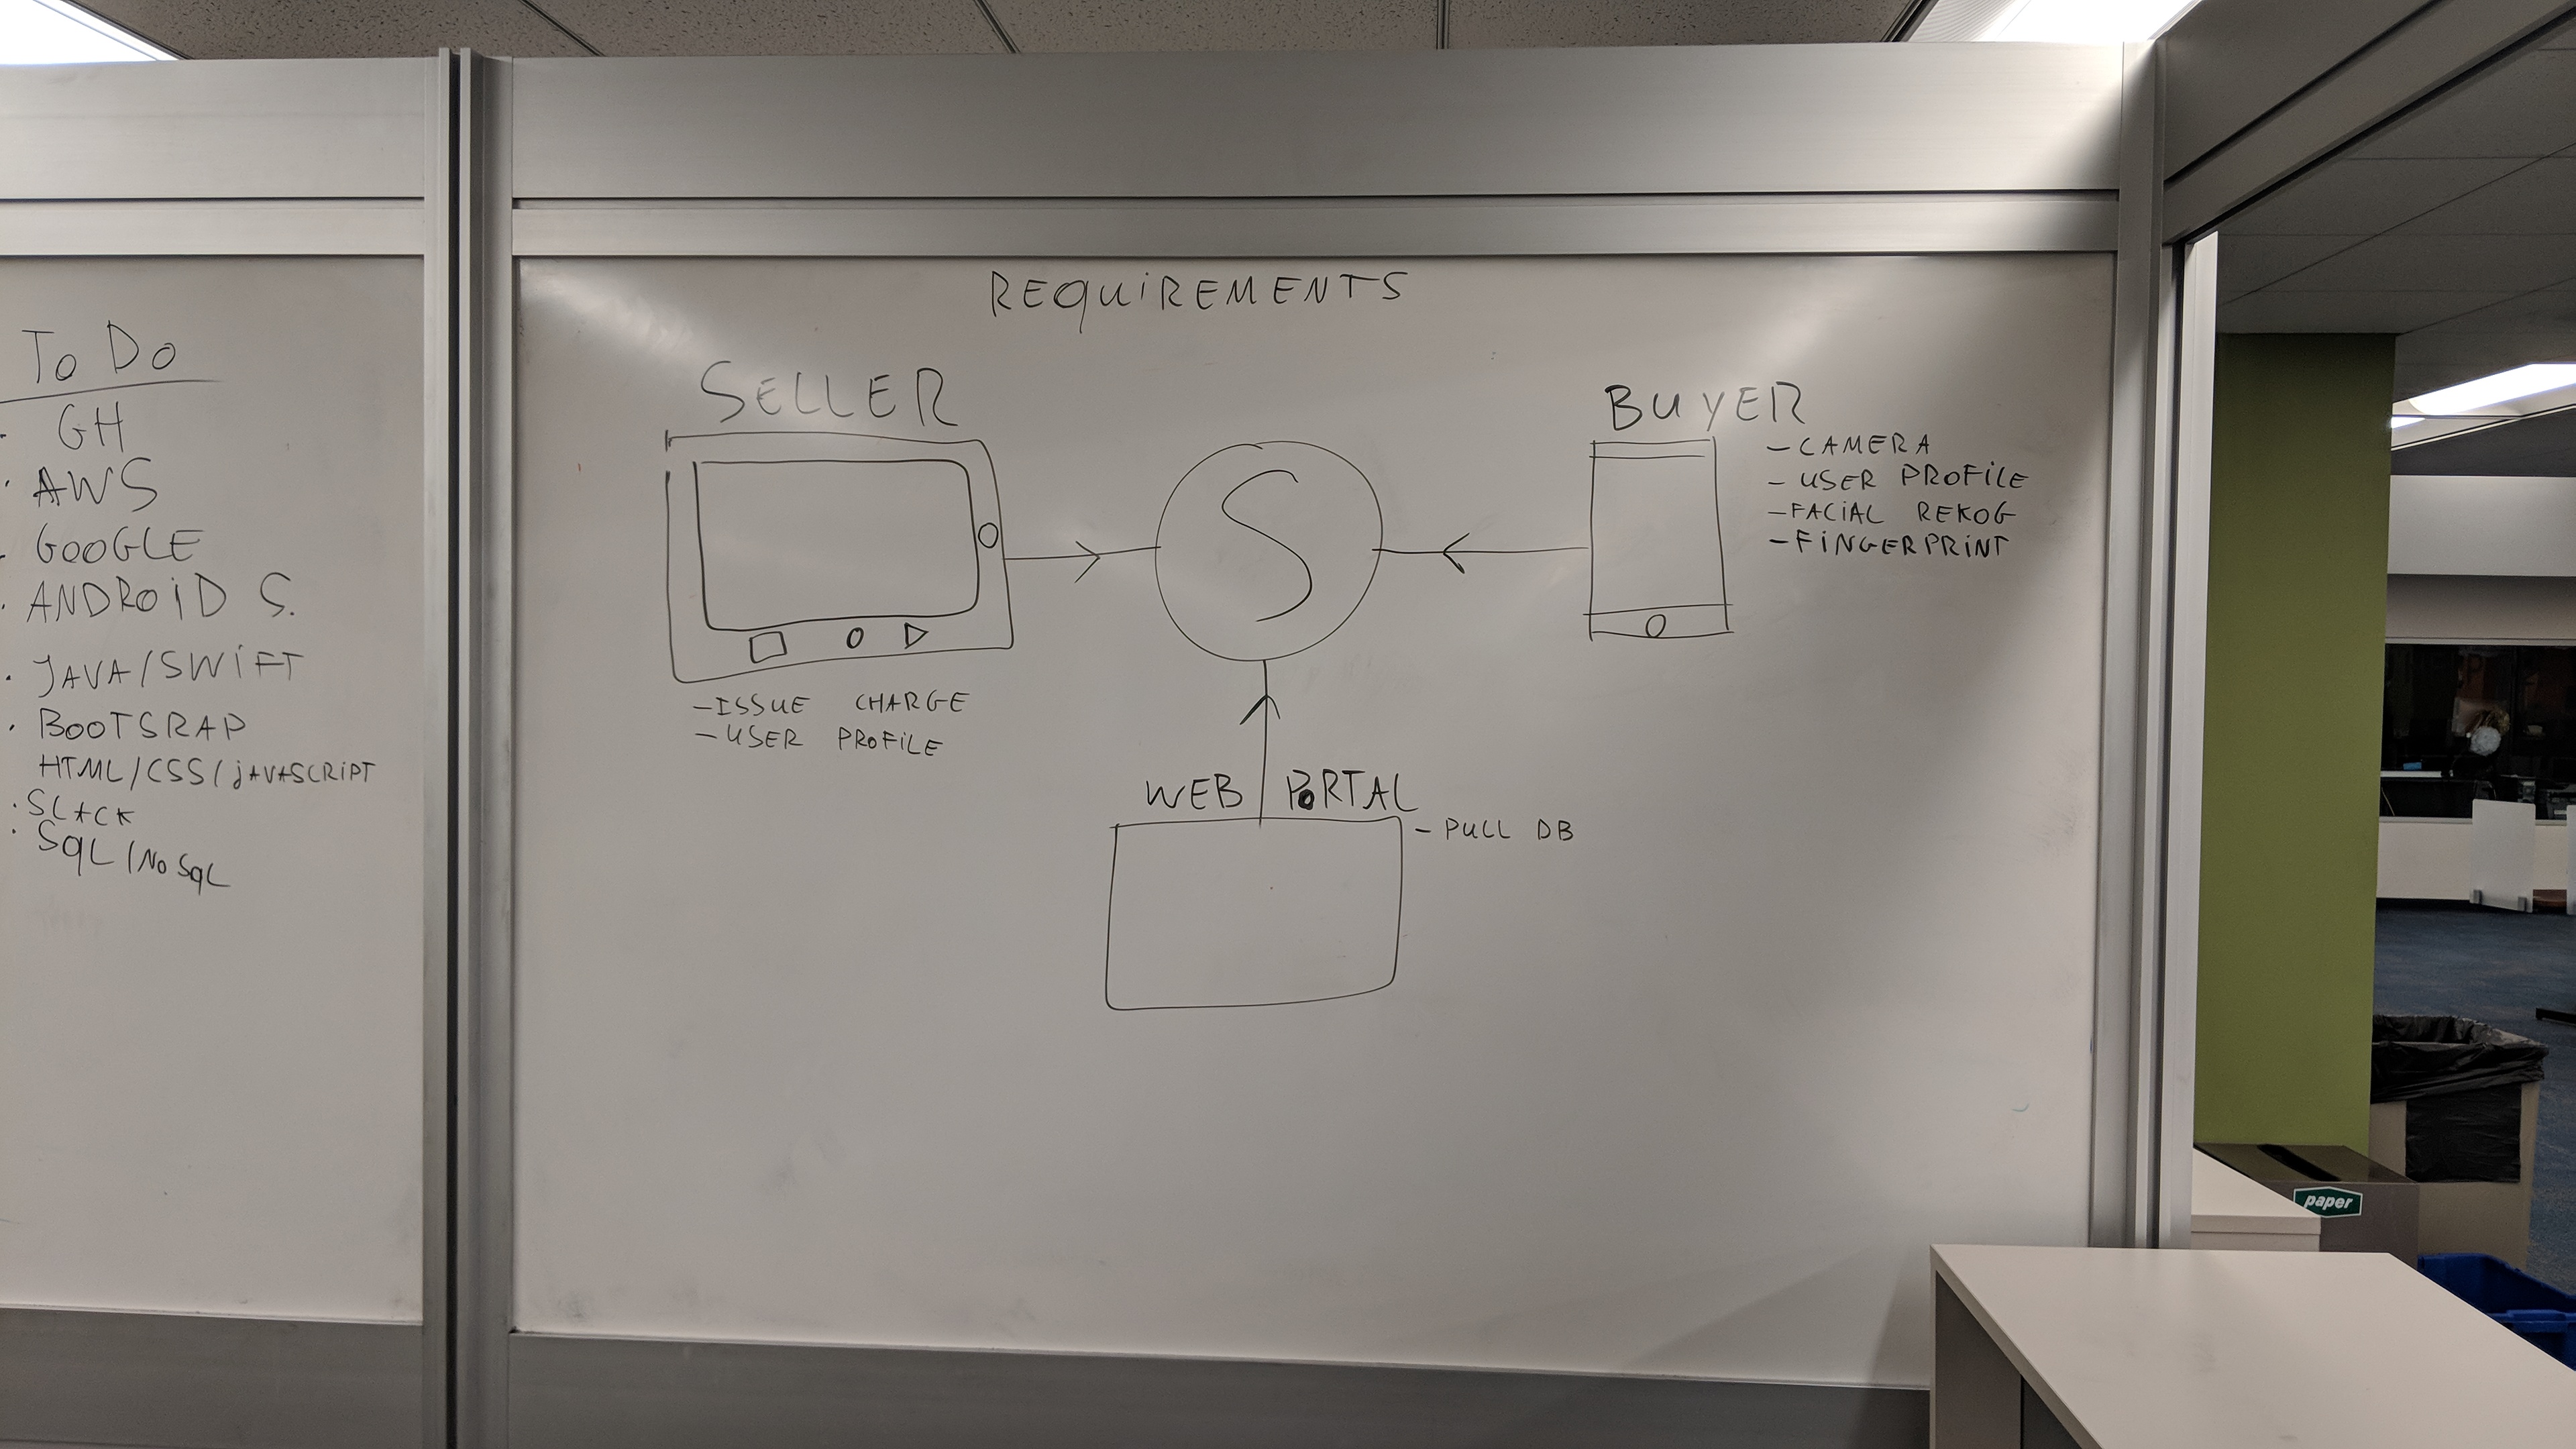 To Do
- GH
· AWS
- GOOGLE
· ANDROID S.
· JAVA/SWIFT
· BOOTSRAP
HTML/CSS/JAVASCRIPT
· SLACK
· SQL/NO SQL
REQUIREMENTS
SELLER
- ISSUE CHARGE
- USER PROFILE
S
BUYER
- CAMERA
- USER PROFILE
- FACIAL REKOG
- FINGERPRINT
WEB PORTAL
- PULL DB
paper